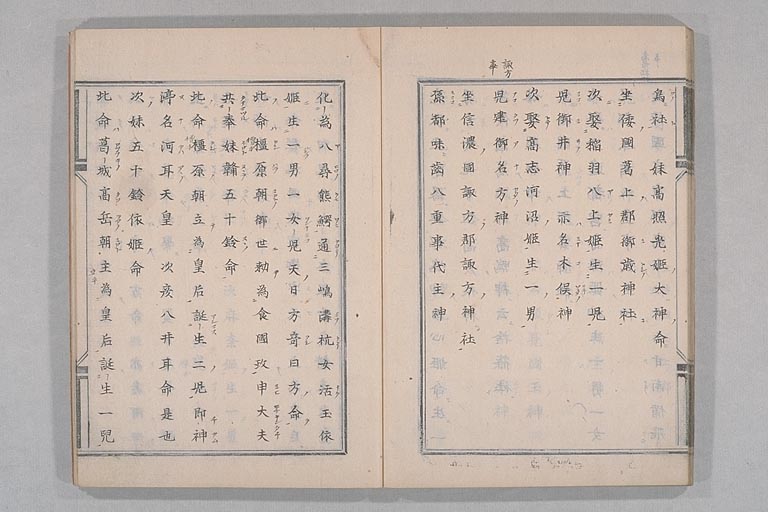 諏方
事
為社 妹高照光姫大神命
坐倭國葛上郡御歳神社
次娶稲羽八上姫生一児
児御井神 亦名木俣神
次娶高志河沼姫生一男
児建御名方神
坐信濃國諏方郡諏方神社
孫都味歯八重事代主神
化為八尋熊鰐通三嶋溝杭女活玉依
姫生一男一女児天日方奇日方命
此命橿原朝御世勅為食國政申大夫
共奉妹韛五十鈴命
此命橿原朝立為皇后誕生二児即神
渟名河耳天皇 次彦八井耳命是也
次妹五十鈴依姫命
此命葛城高岳朝主為皇后誕生一児